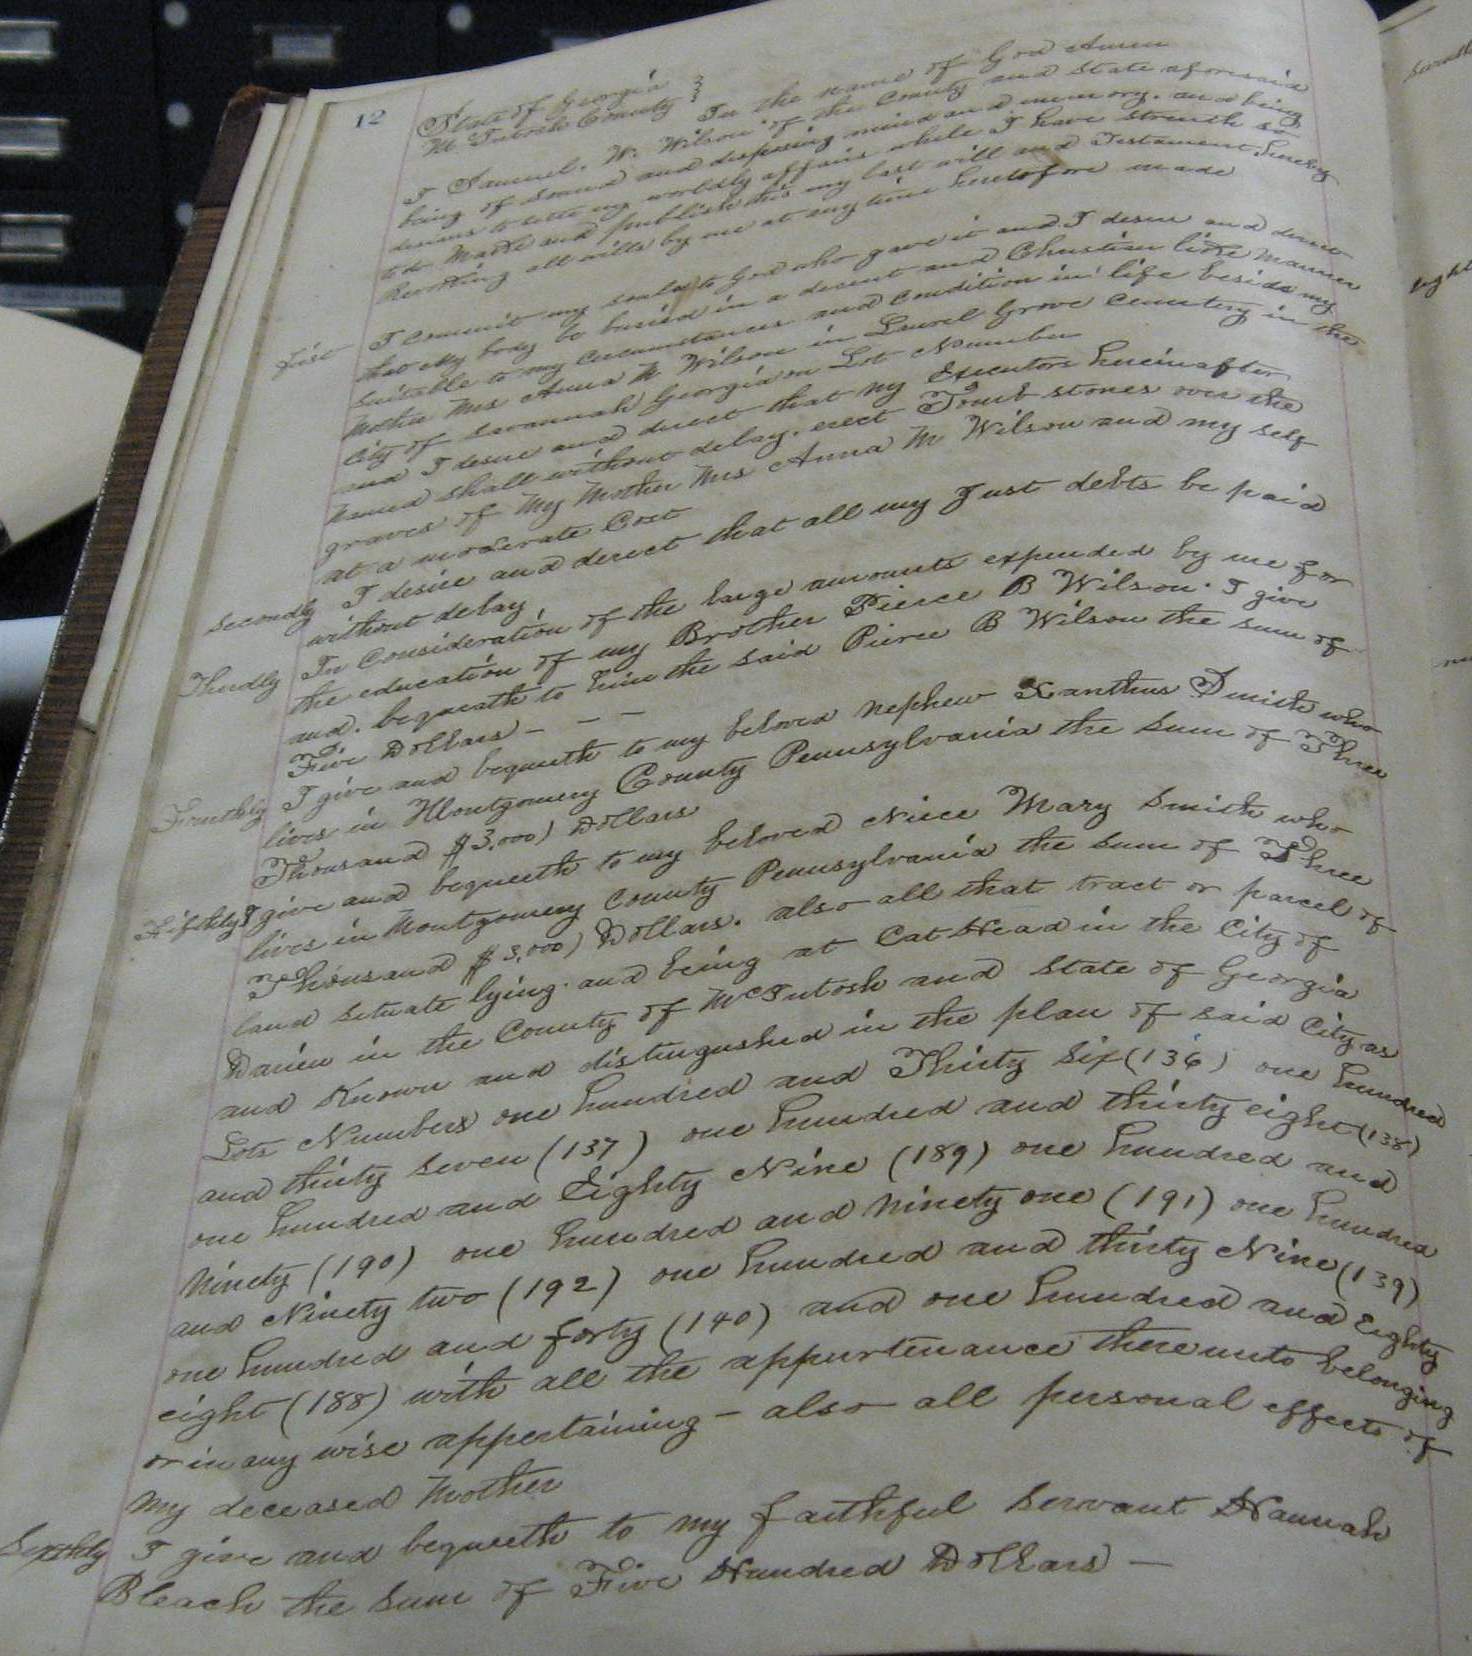 12
State of Georgia }
McIntosh County }
In the name of God Amen
I Samuel. W. Wilson of the County and State aforesaid
being of sound and disposing mind and memory. and being
desirous to settle my worldly affairs while I have strength so
to do Make and publish this my last will and Testament hereby
Revoking all wills by me at any time heretofore made
First I Commit my soul to God who gave it and I desire and direct
that my body be buried in a decent and Christian like Manner
suitable to my Circumstances and Condition in life beside my
Mother Mrs Anna M Wilson in Laurel Grove Cemetery in the
City of Savannah Georgia on Lot Number
and I desire and direct that my Executors hereinafter
named shall without delay. erect Tomb stones over the
graves of My Mother Mrs Anna M Wilson and my self
at a moderate Cost
Secondly I desire and direct that all my Just debts be paid
without delay
Thirdly In Consideration of the large amounts expended by me for
the education of my Brother Pierce B Wilson. I give
and. bequeath to him the said Pierce B Wilson the sum of
Five Dollars — — —
Fourthly I give and bequeath to my beloved nephew Xanthus Smith who
lives in Montgomery County Pennsylvania the sum of Three
Thousand $3,000) Dollars
Fifthly I give and bequeath to my beloved Niece Mary Smith who
lives in Montgomery County Pennsylvania the sum of Three
Thousand $3,000) Dollars. also all that tract or parcel of
land situate lying. and being at Cat Head in the City of
Darien in the County of McIntosh and State of Georgia
and Known and distinguished in the plan of said City as
Lots Numbers one hundred and Thirty Six (136) one hundred
and thirty seven (137) one hundred and thirty eight (138)
one hundred and Eighty Nine (189) one hundred and
Ninety (190) one hundred and Ninety one (191) one hundred
and Ninety two (192) one hundred and thirty Nine (139)
one hundred and forty (140) and one hundred and Eighty
eight (188) with all the appurtenance thereunto belonging
or in any wise appertaining — also all personal effects of
My deceased Mother
Sixthly I give and bequeath to my faithful servant Hannah
Bleach the sum of Five Hundred Dollars —